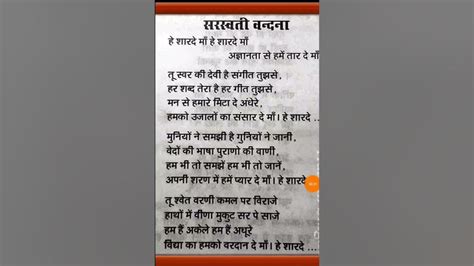 सरस्वती वन्दना
हे शारदे माँ हे शारदे माँ
अज्ञानता से हमें तार दे माँ
तू स्वर की देवी है संगीत तुझसे,
हर शब्द तेरा है हर गीत तुझसे,
मन से हमारे मिटा दे अंधेरे,
हमको उजालों का संसार दे माँ। हे शारदे ...
मुनियों ने समझी है गुनियों ने जानी,
वेदों की भाषा पुराणो की वाणी,
हम भी तो समझें हम भी तो जानें,
अपनी शरण में हमें प्यार दे माँ। हे शारदे
तू श्वेत वरणी कमल पर विराजे
हाथों में वीणा मुकुट सर पे साजे
हम हैं अकेले हम हैं अधूरे
विद्या का हमको वरदान दे माँ। हे शारदे ...